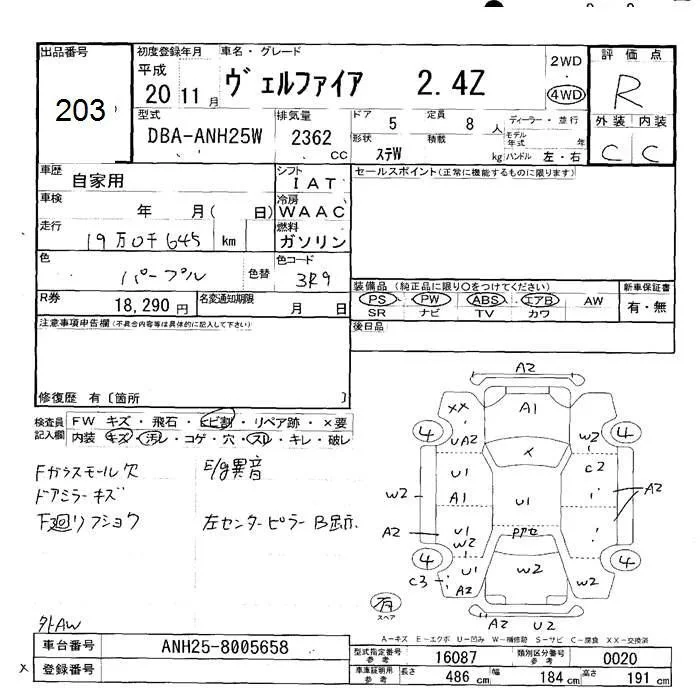 出品番号 初度登録年月 車名・グレード 評価点
203
平成 20 11月 ヴェルファイア 2.4Z 2WD 4WD R
型式 DBA-ANH25W 排気量 2362 cc
ドア 5 定員 8 人 ディーラー・並行 外装 内装
形状 ステW 積載 kg モデル年式 年 ハンドル 左・右 C C
車歴 自家用 シフト IAT セールスポイント(正常に機能するものに限ります)
車検 年 月( 日) 冷房 WAAC
走行 19万0千645 km 燃料 ガソリン
色 パープル 色替 色コード 3R9
装備品 (純正品に限り○をつけてください) 新車保証書
R券 18,290 円 名変通知期限 月 日
PS PW ABS エアB AW 有・無
SR ナビ TV カワ
注意事項申告欄(不具合内容等は具体的に記入して下さい)
後日品
修復歴 有〔箇所 〕
検査員記入欄 FW キズ・飛石・ヒビ割・リペア跡・×要
内装 キズ・汚レ・コゲ・穴・スレ・キレ・破レ
Fガラスモール欠 E/g異音
ドアミラーキズ
左センターピラーB
外AW
A2
XX A1
4 UA2 W2 4
メ
U1 C2
W2 A1 U1 A2
A2 U1 W2
4 U1 W2 W2 4
C3 A2
有 スペア
A2 U2
A-キズ E-エクボ U-凹み W-補修跡 S-サビ C-腐食 XX-交換済
車台番号 ANH25-8005658
型式指定番号 参考 16087 類別区分番号 参考 0020
× 登録番号
車庫証明用 参考 長さ 486 cm 幅 184 cm 高さ 191 cm